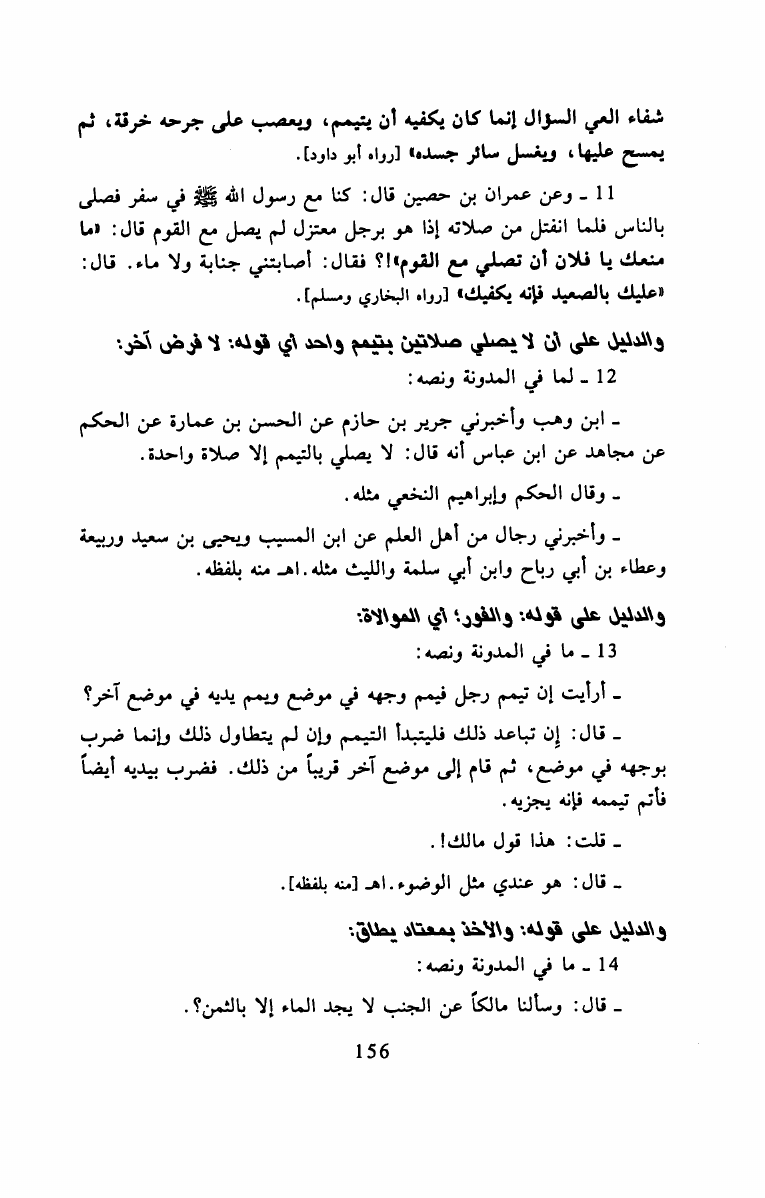 شفاء العي السؤال إنما كان يكفيه أن يتيمم، ويعصب على جرحه خرقة، ثم
يمسح عليها، ويغسل سائر جسده» [رواه أبو داود].
11 - وعن عمران بن حصين قال: كنا مع رسول الله ﷺ في سفر فصلى
بالناس فلما انفتل من صلاته إذا هو برجل معتزل لم يصل مع القوم قال: «ما
منعك يا فلان أن تصلي مع القوم»!؟ فقال: أصابتني جنابة ولا ماء. قال:
«عليك بالصعيد فإنه يكفيك» [رواه البخاري ومسلم].
والدليل على أن لا يصلي صلاتين بتيمم واحد أي قوله: لا فرض آخر:
12 - لما في المدونة ونصه:
- ابن وهب وأخبرني جرير بن حازم عن الحسن بن عمارة عن الحكم
عن مجاهد عن ابن عباس أنه قال: لا يصلي بالتيمم إلا صلاة واحدة.
- وقال الحكم وإبراهيم النخعي مثله.
- وأخبرني رجال من أهل العلم عن ابن المسيب ويحيى بن سعيد وربيعة
وعطاء بن أبي رباح وابن أبي سلمة والليث مثله. اهـ منه بلفظه.
والدليل على قوله: والفور؛ أي الموالاة:
13 - ما في المدونة ونصه:
- أرأيت إن تيمم رجل فيمم وجهه في موضع ويمم يديه في موضع آخر؟
- قال: إن تباعد ذلك فليتبدأ التيمم وإن لم يتطاول ذلك وإنما ضرب
بوجهه في موضع، ثم قام إلى موضع آخر قريباً من ذلك. فضرب بيديه أيضاً
فأتم تيممه فإنه يجزيه.
- قلت: هذا قول مالك!.
- قال: هو عندي مثل الوضوء. اهـ [منه بلفظه].
والدليل على قوله: والأخذ بمعتاد يطاق:
14 - ما في المدونة ونصه:
- قال: وسألنا مالكاً عن الجنب لا يجد الماء إلا بالثمن؟.
156